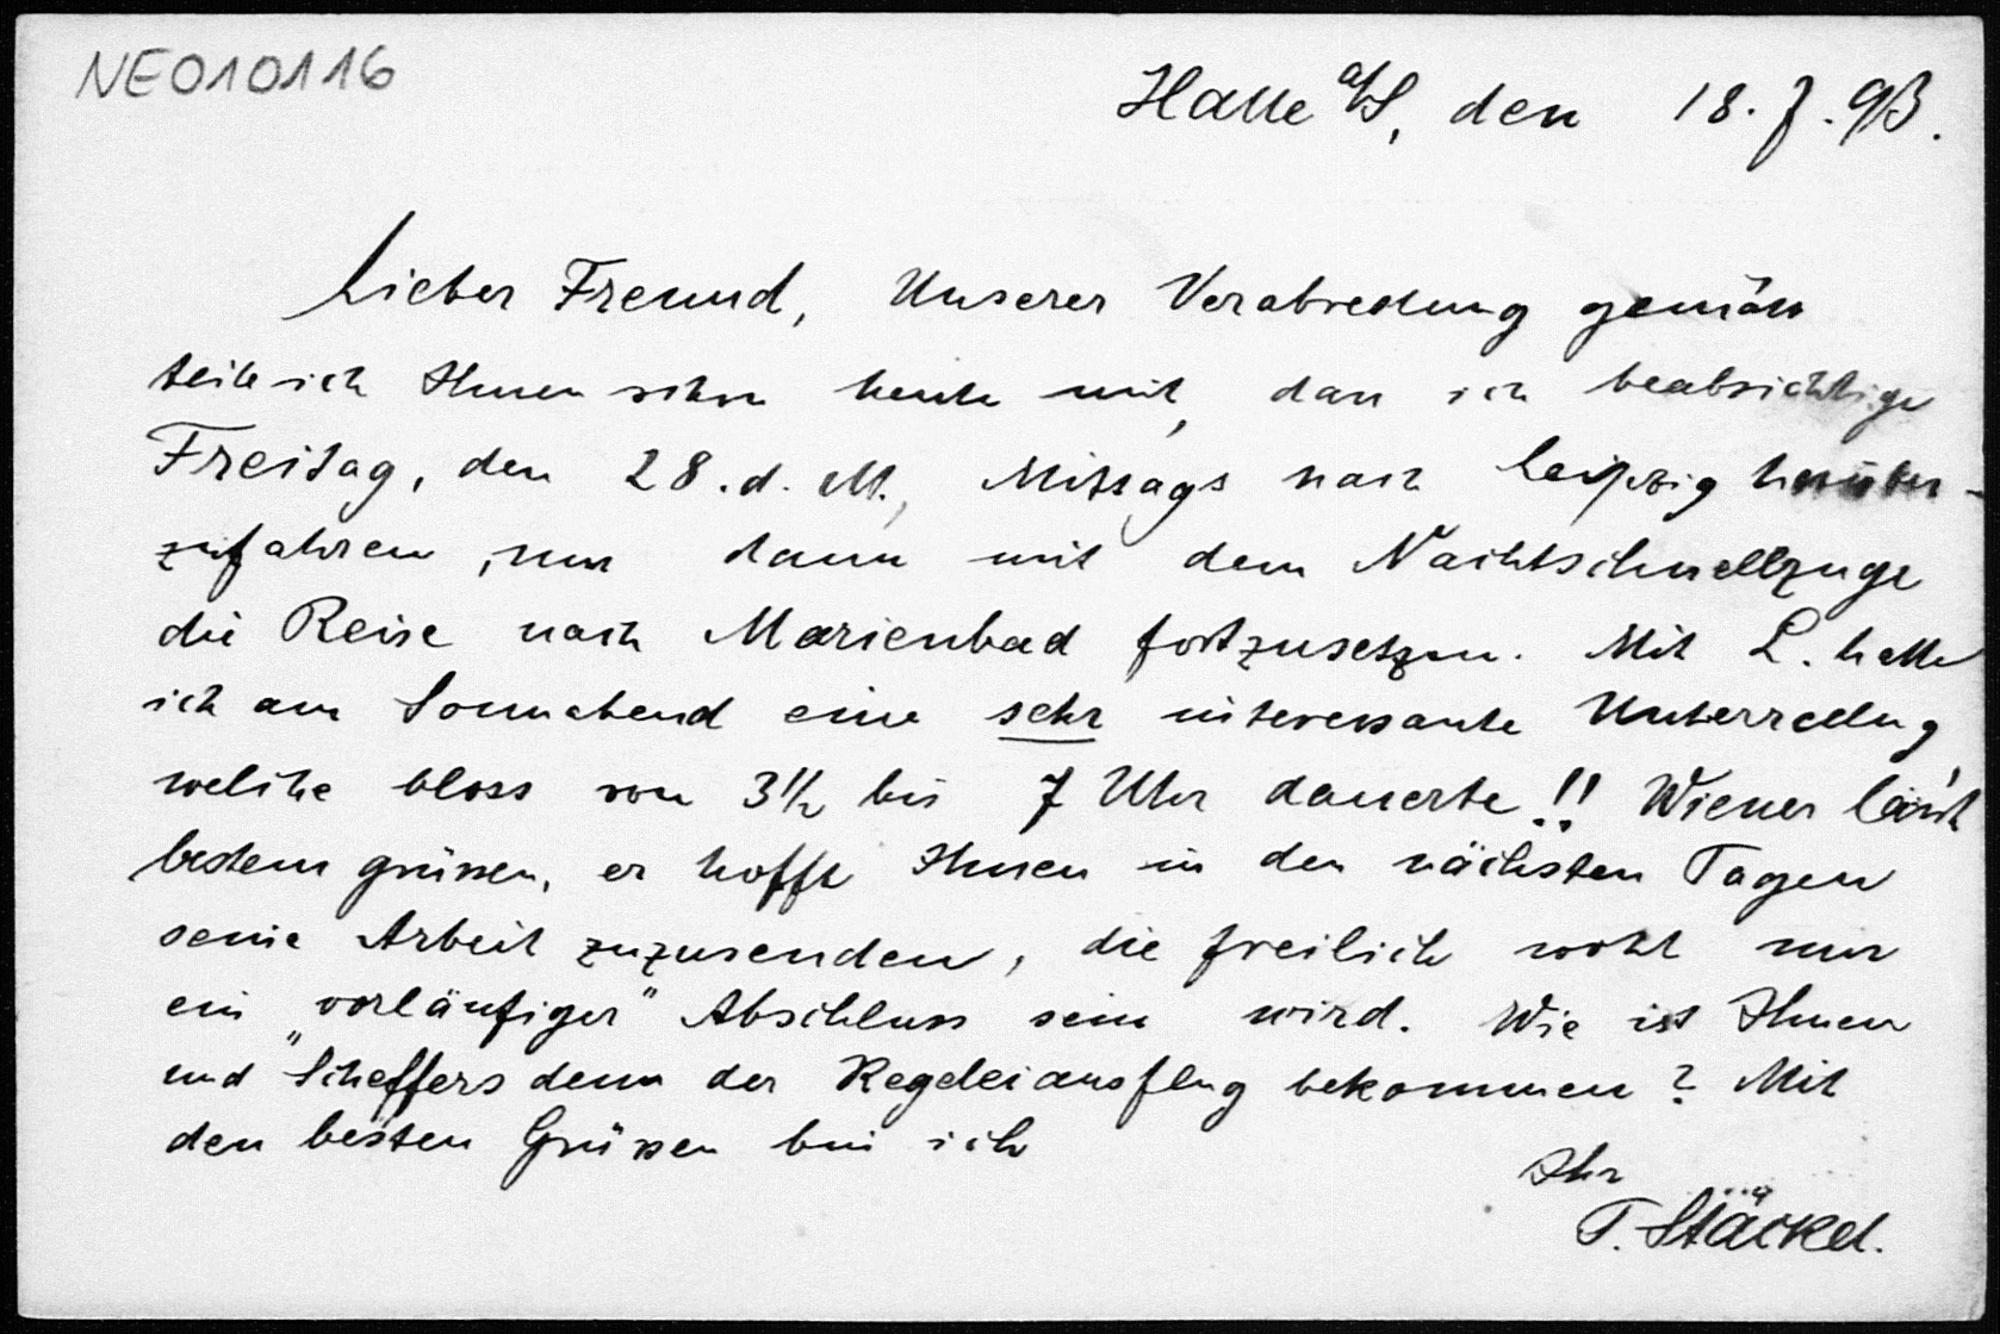 NE010116
Halle a/S, den 18. 7. 93.
Lieber Freund, Unserer Verabredung gemäss
teile ich Ihnen schon heute mit, dass ich beabsichtige
Freitag, den 28. d. M., Mittags nach Leipzig herüber-
zufahren, um dann mit dem Nachtschnellzuge
die Reise nach Marienbad fortzusetzen. Mit L. hatte
ich am Sonnabend eine sehr interessante Unterredung,
welche bloss von 3 1/2 bis 7 Uhr dauerte!! Wiener lässt
bestens grüssen, er hofft Ihnen in den nächsten Tagen
seine Arbeit zuzusenden, die freilich wohl nur
ein „vorläufiger" Abschluss sein wird. Wie ist Ihnen
und Scheffers denn der Kegeleiausflug bekommen? Mit
den besten Grüssen bin ich
Ihr
P. Stäckel.